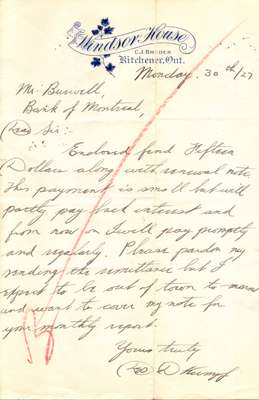 Windsor House
C.J. BRODER
Kitchener, Ont.
Monday, 30th/27
Mr. Burwell,
Bank of Montreal,
Dear Sir:
Enclosed find Fifteen
Dollars along with renewal note
This payment is small but will
partly pay back interest and
from now on I will pay promptly
and regularly. Please pardon my
sending the remittance but I
expect to be out of town to morrow
and want to cover my note for
your monthly report.
Yours truly
Geo A